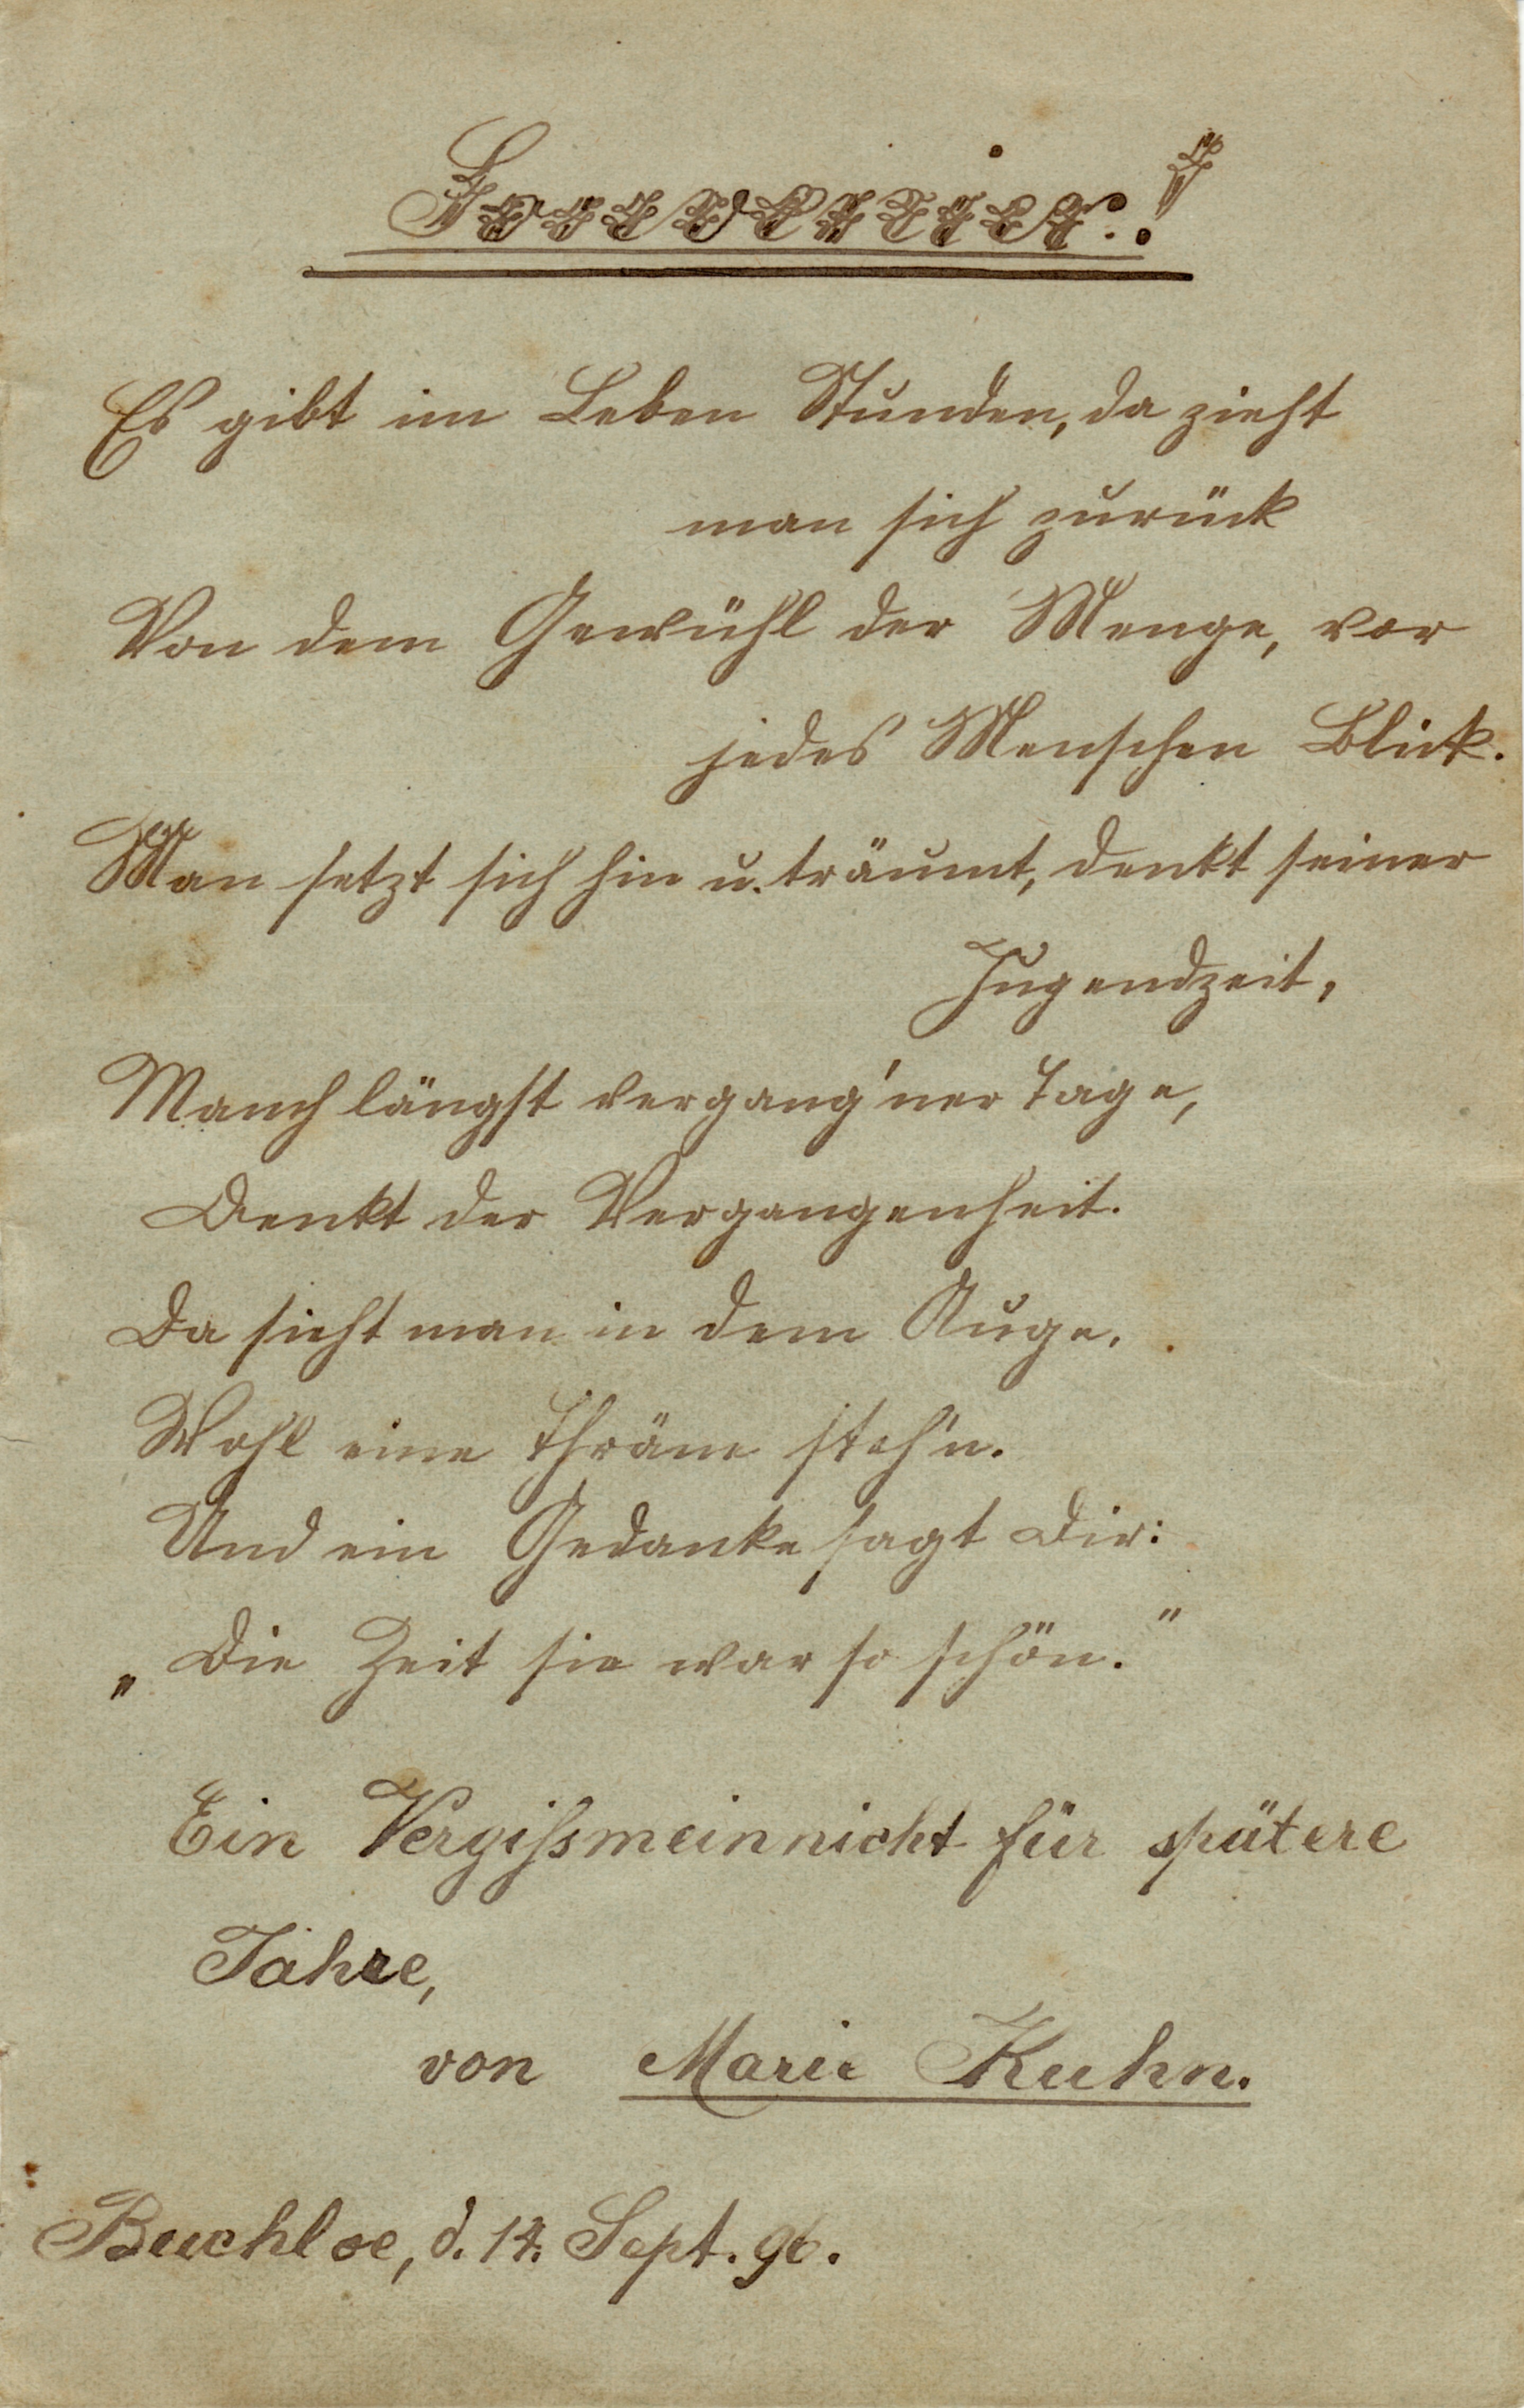 Souvenier.!
Es gibt im Leben Stunden, da zieht
man sich zurück
Von dem Gewühl der Menge, vor
jedes Menschen Blick.
Man setzt sich hin u. träumt, denkt seiner
Jugendzeit,
Manch längst vergang'ner Tage,
Denkt der Vergangenheit.
Da sieht man in dem Auge.
Wohl eine Thräne steh'n.
Und ein Gedanke sagt Dir:
„Die Zeit sie war so schön."
Ein Vergißmeinnicht für spätere
Jahre,
von Marie Kuhn.
Buchloe, d. 14. Sept. 96.